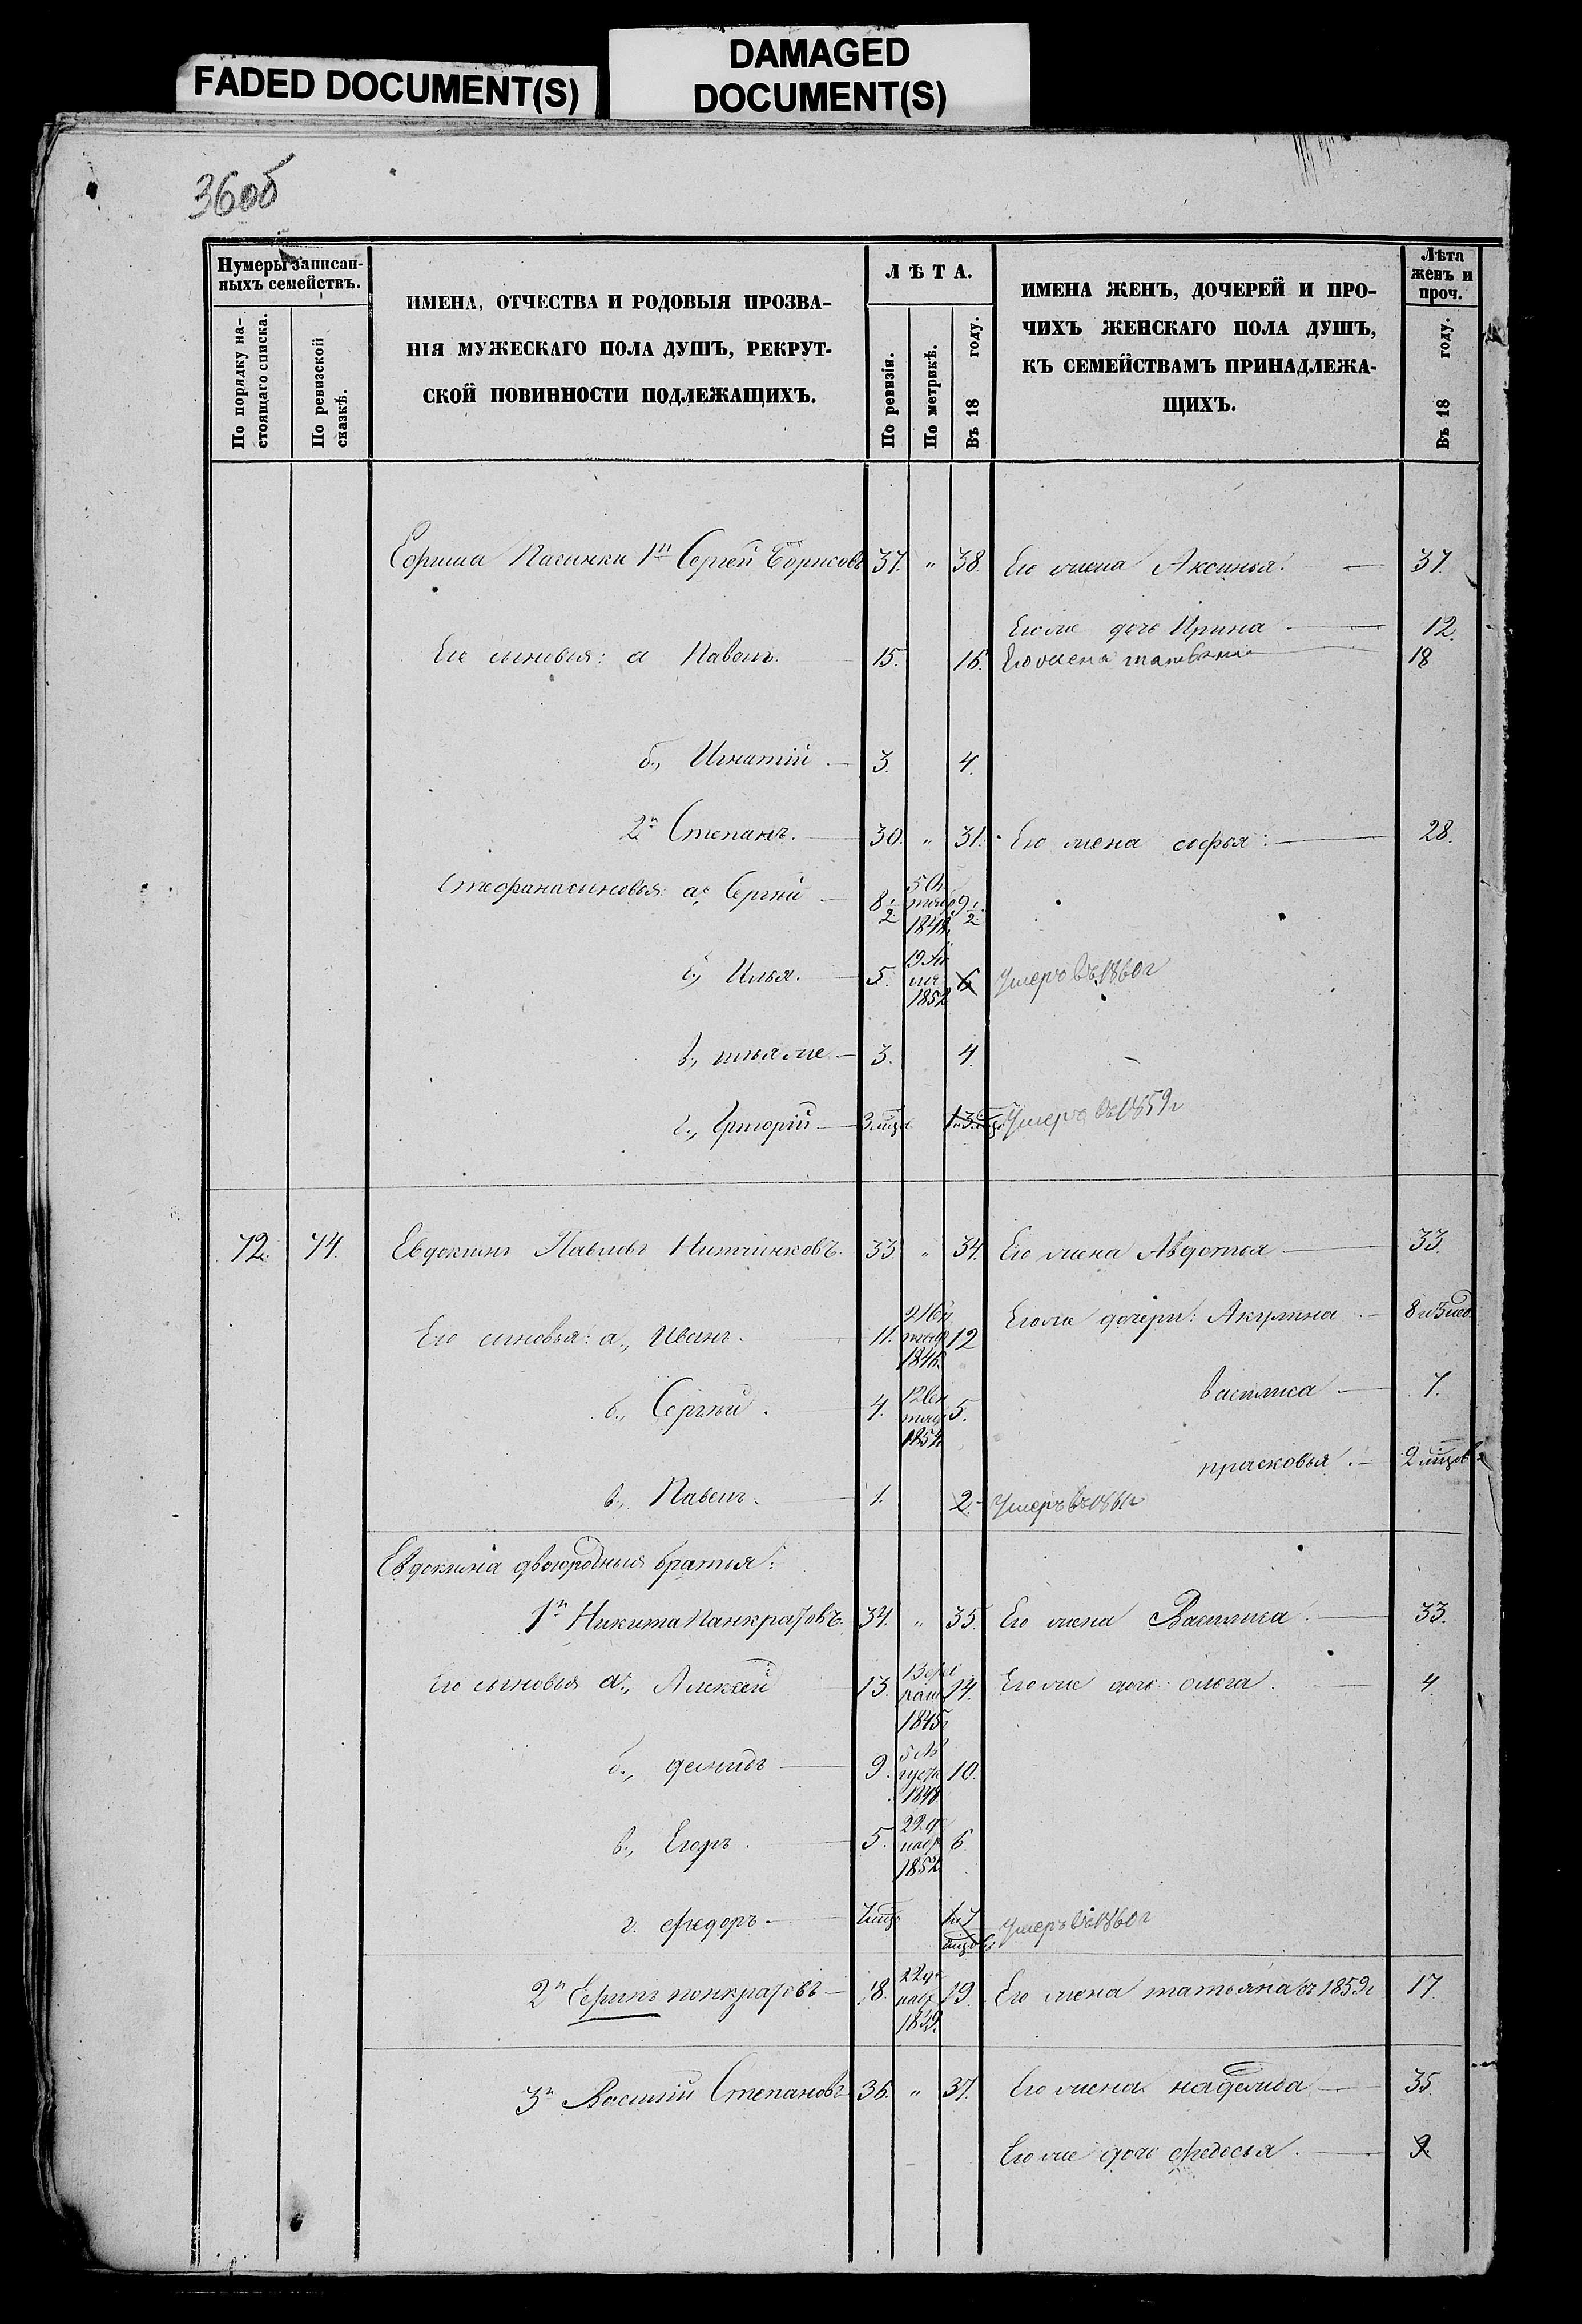 FADED DOCUMENT(S)
DAMAGED
DOCUMENT(S)
36об
Нумеры записан-
ныхъ семействъ.
По порядку на-
стоящаго списка.
По ревизской
сказкѣ.
ИМЕНА, ОТЧЕСТВА И РОДОВЫЯ ПРОЗВА-
НІЯ МУЖЕСКАГО ПОЛА ДУШЪ, РЕКРУТ-
СКОЙ ПОВИННОСТИ ПОДЛЕЖАЩИХЪ.
ЛѢТА.
По ревизіи.
По метрикѣ.
Въ 18 году.
ИМЕНА ЖЕНЪ, ДОЧЕРЕЙ И ПРО-
ЧИХЪ ЖЕНСКАГО ПОЛА ДУШЪ,
КЪ СЕМЕЙСТВАМЪ ПРИНАДЛЕЖА-
ЩИХЪ.
Лѣта
женъ и
проч.
Въ 18 году.
Пасинки 1й Сергей Борисовъ 37. " 38. Его жена Аксинья. — 37.
Егоже дочь Ирина — 12.
Его сыновья: а Павелъ. 15. 16. Его жена 18
б., Игнатій. — 3. 4.
2й Степанъ. — 30. " 31. Его жена софья: — 28.
сыновья: а., Сергей — 8 1/2 1848 9 1/2
б., Илья. — 5. 19 1852 6 Умеръ въ 1860г
в., илья же — 3. 4.
г., Григорій — 3 мцо Умеръ въ 1859г
72. 74. Евдокимъ Павловъ 33. " 34. Его жена Авдотья — 33.
Егоже дочери: Акулина — 8
Его сыновья: а., Иванъ. — 11. 1846 12
василиса — 7.
б., Сергѣй. 4. 12 Сен тяб 1854 5.
прасковья. — 2 мцов
в., Павелъ. — 1. 2. Умеръ въ 1861г
Евдокима двоюродныя братья:
1й Никита Панкратовъ. 34. " 35. Его жена Василиса. — 33.
Его сыновья а., Алексей 13. 13 фев раля 1845г 14. Егоже дочь ольга. — 4.
б., демидъ — 9. 5 Ав густа 1848 10.
в., Егоръ. — 5. 1852 6.
г. федоръ. — 7 мцо 1 и 7 мцовъ Умеръ въ 1860г
2й понкратовъ — 18. 1839. 19. Его жена татьяна въ 1859г 17.
3й Василій Степановъ 36. " 37. Его жена надежда — 35.
Егоже дочь федосья. — 9.